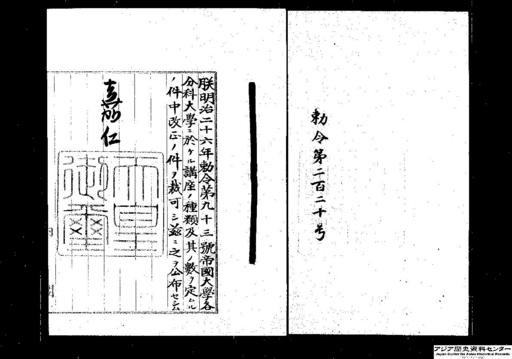 勅令第二百二十号
朕明治二十六年勅令第九十三號帝國大學各
分科大學ニ於ケル講座ノ種類及其ノ數ヲ定ムル
ノ件中改正ノ件ヲ裁可シ茲ニ之ヲ公布セシム
嘉仁
天皇
御璽
アジア歴史資料センター
Japan Center for Asian Historical Records